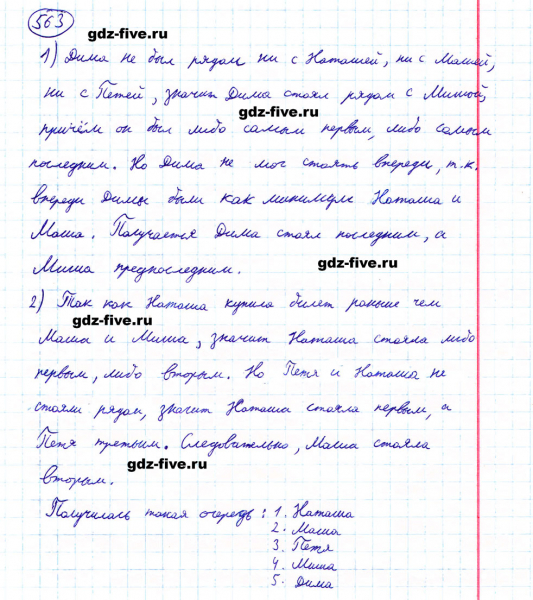 563
gdz-five.ru
1) Дима не был рядом ни с Наташей, ни с Машей,
ни с Петей, значит Дима стоял рядом с Мишой,
gdz-five.ru
причём он был либо самым первым, либо самым
последним. Но Дима не мог стоять впереди, т.к.
впереди Димы были как минимум Наташа и
Маша. Получается Дима стоял последним, а
Миша предпоследним.
gdz-five.ru
2) Так как Наташа купила билет раньше чем
gdz-five.ru
Маша и Миша, значит Наташа стояла либо
первым, либо вторым. Но Петя и Наташа не
стояли рядом, значит Наташа стояла первым, а
Петя третьим. Следовательно, Маша стояла
gdz-five.ru
вторым.
Получилась такая очередь: 1. Наташа
2. Маша
3. Петя
4. Миша
5. Дима